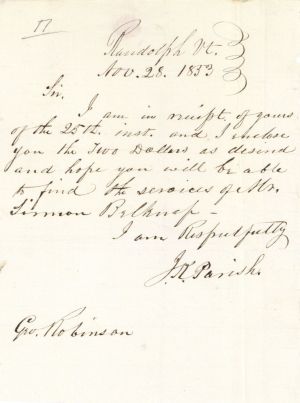 17
Randolph Vt.
Nov. 28. 1853
Sir.
I am in receipt of yours
of the 25th. inst. and I inclose
you the Two Dollars as desired
and hope you will be able
to find the services of Mr.
Belknap –
I am Respectfully
Parish.
Geo. Robinson